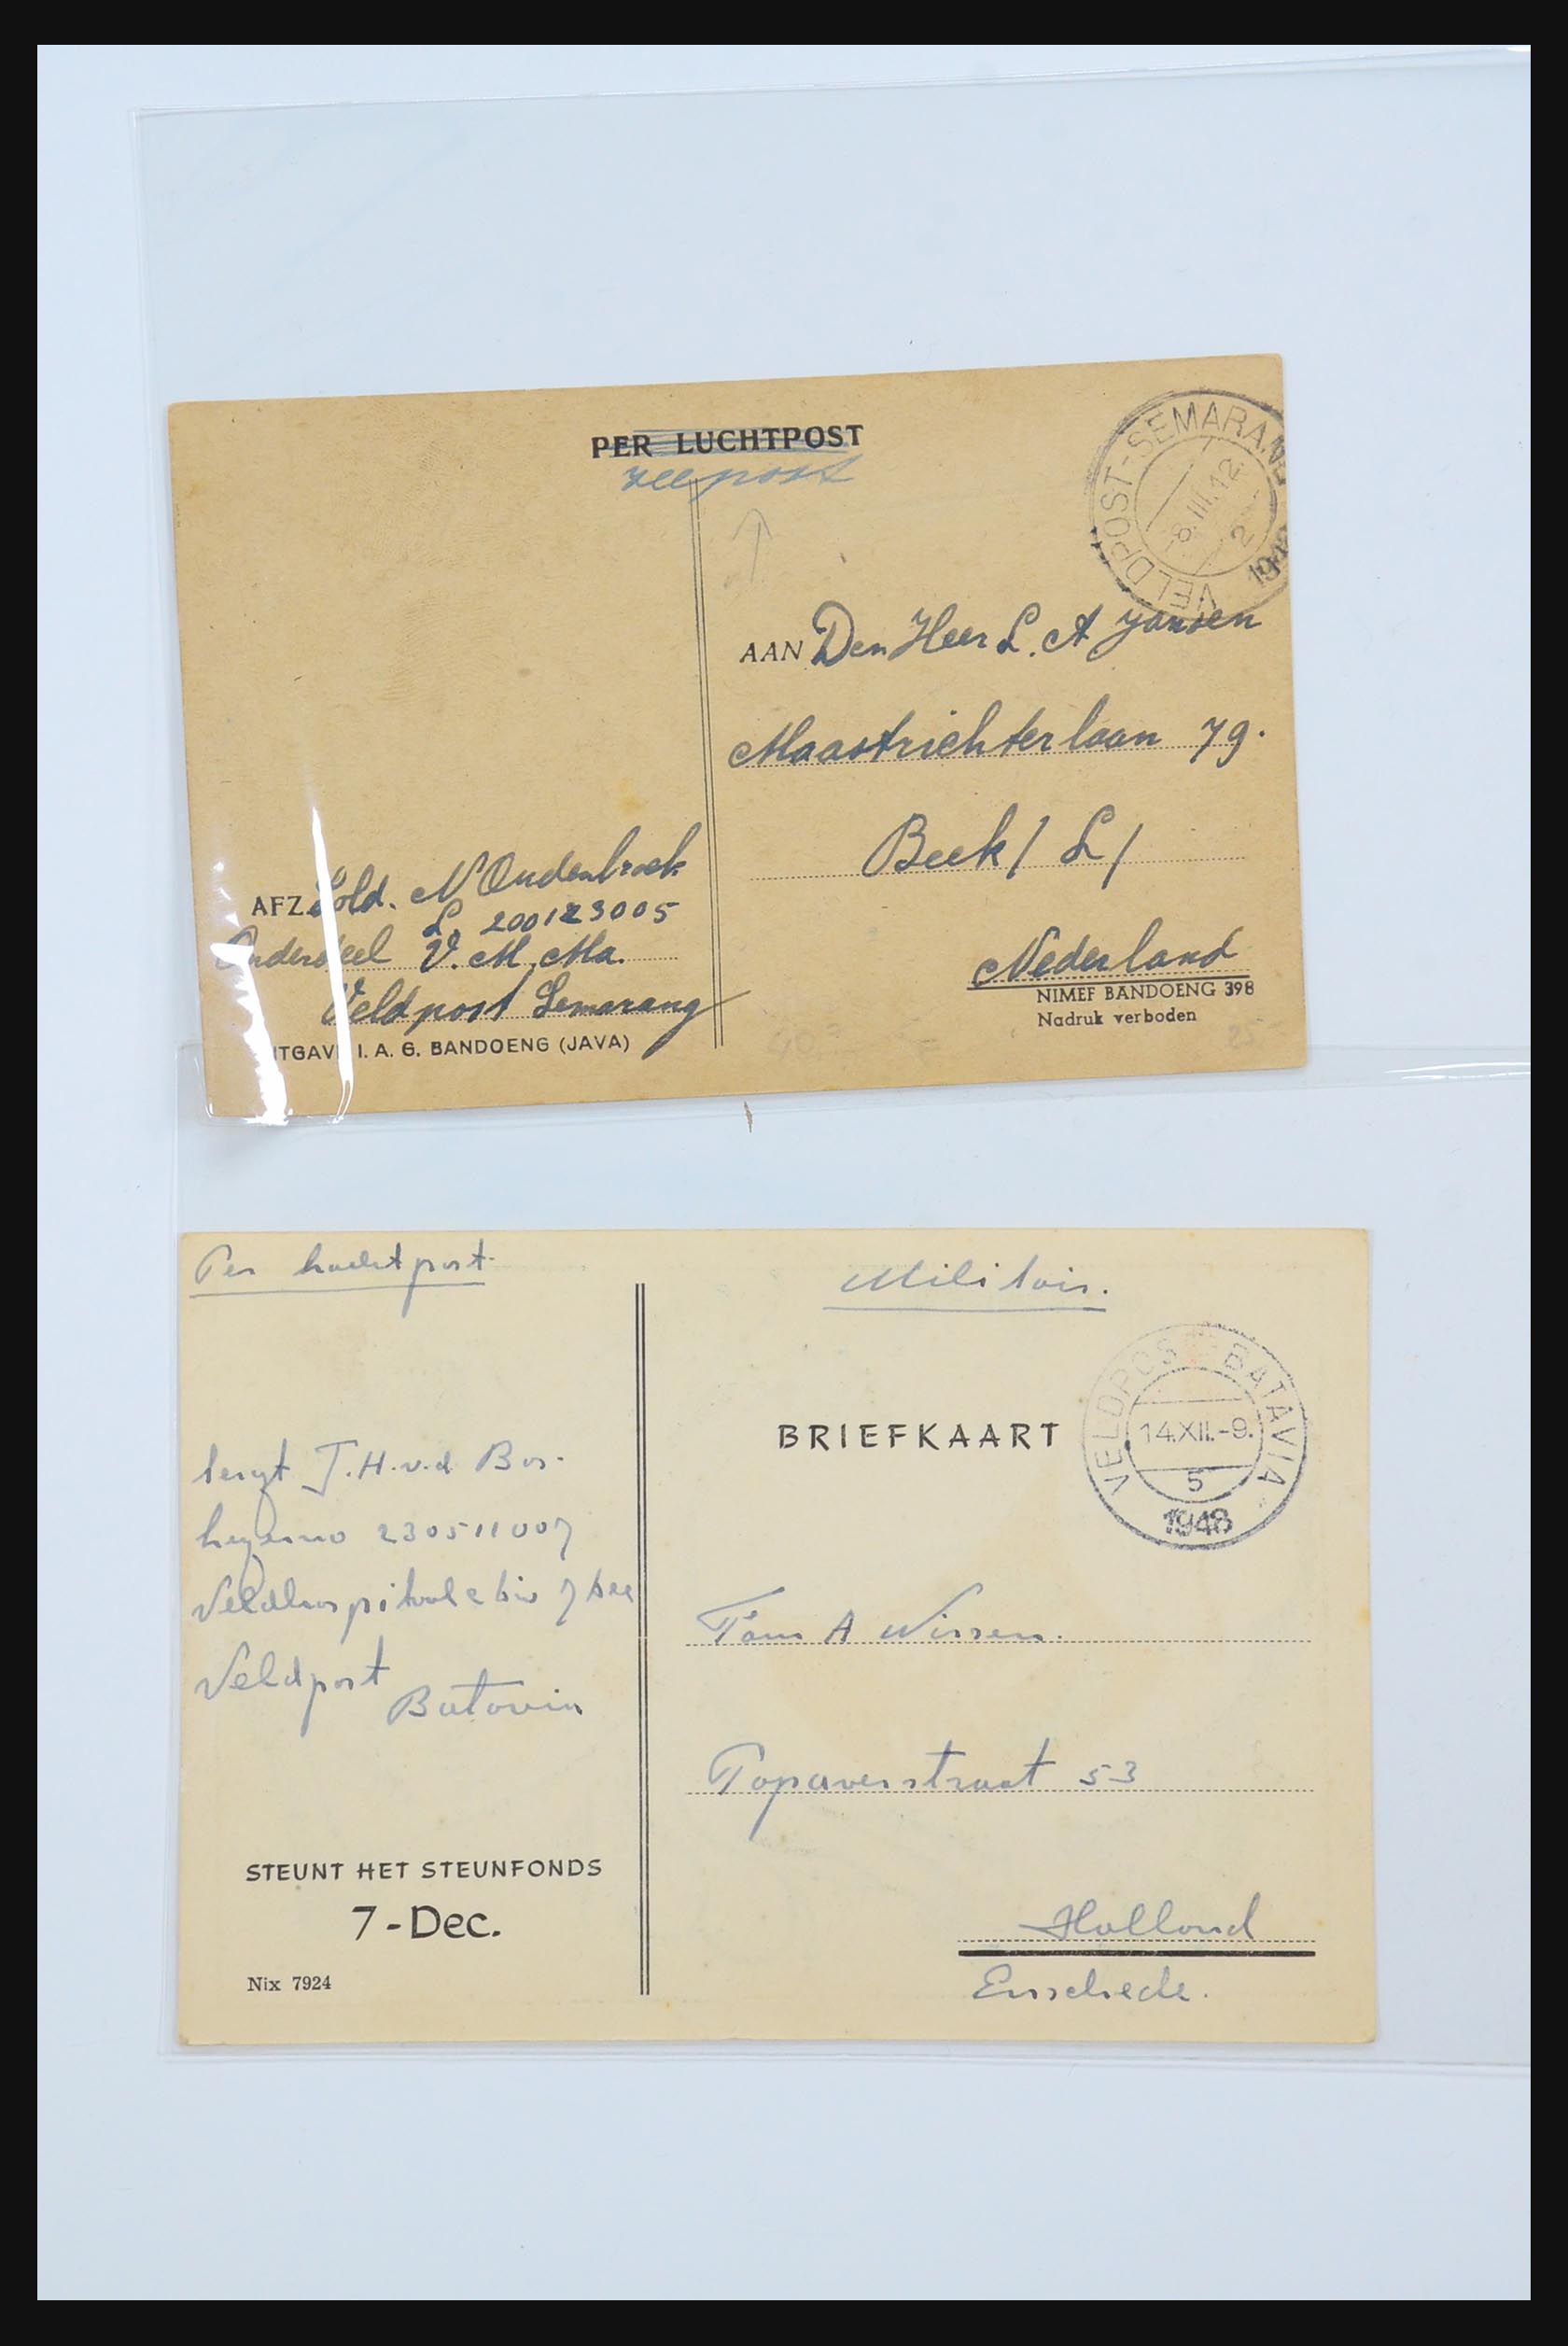 PER LUCHTPOST
zeepost
VELDPOST-SEMARANG
8.III.12
2
AAN Den Heer L. A Jansen
Maastrichterlaan 79.
Beek / L /
Nederland
NIMEF BANDOENG 398
Nadruk verboden
AFZ. Sold. N Oudenbroek
L. 200123005
Onderdeel V. M. Ma.
Veldpost Semarang
ITGAV I. A. G. BANDOENG (JAVA)
Per luchtpost
Militair.
BRIEFKAART
VELDPOS BATAVIA
14.XII.-9.
5
1948
Sergt J. H. v. d Bos.
legerno 230511007
Veldhospitaal 2 Div
Veldpost
Batavia
Fam A Wissen.
Papaverstraat 53
Holland
Enschede.
STEUNT HET STEUNFONDS
7-Dec.
Nix 7924